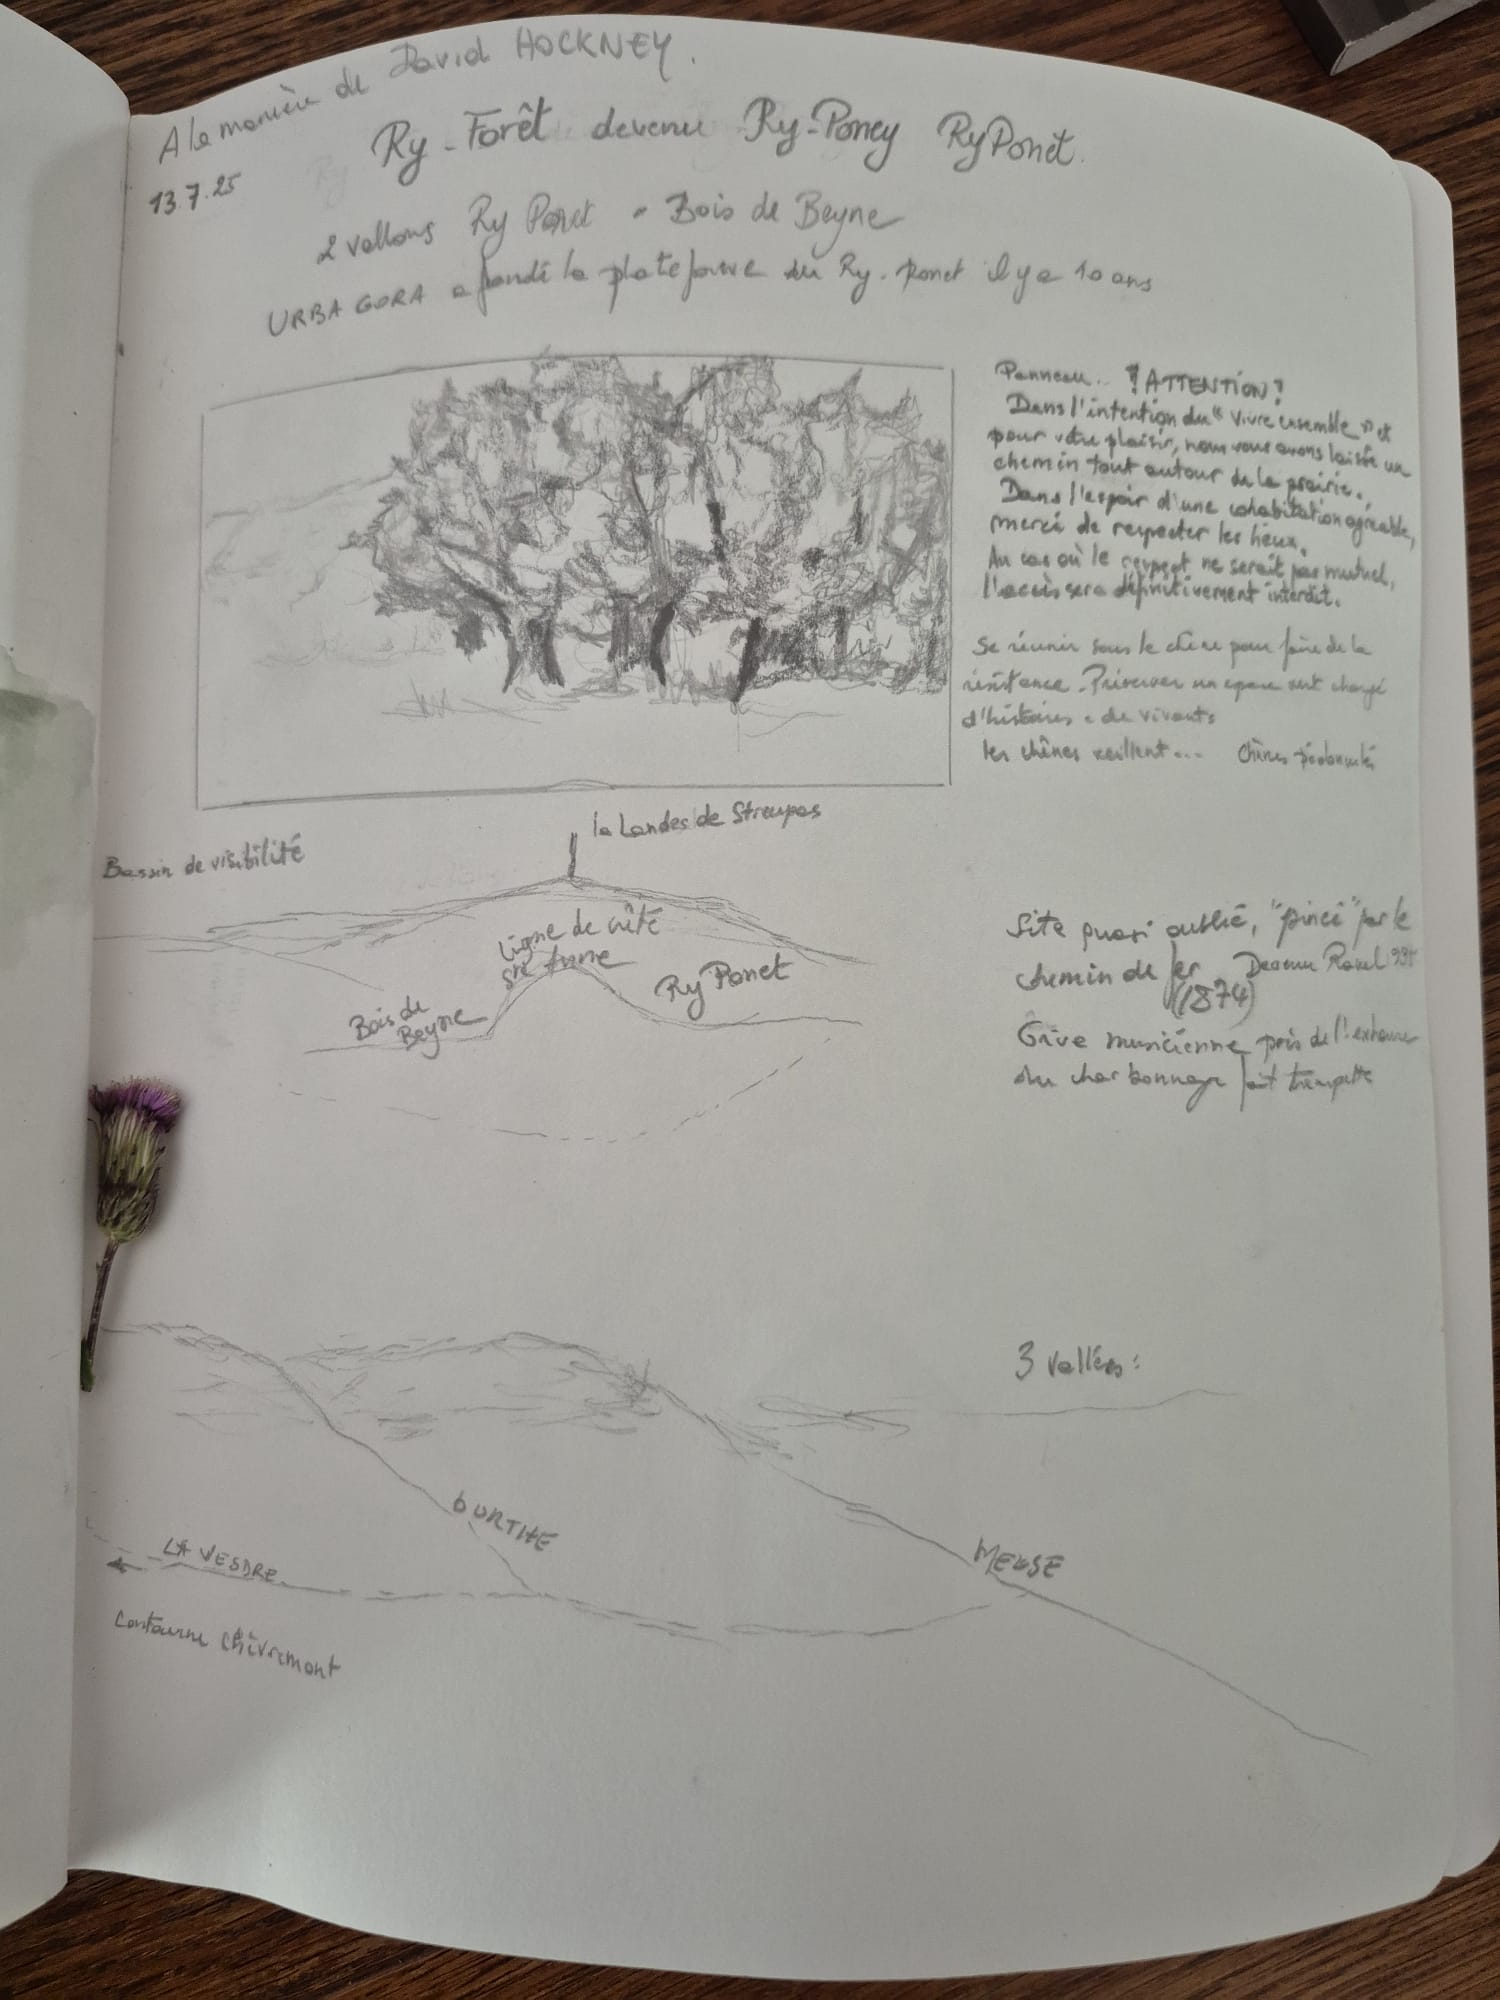 A la manière de David HOCKNEY.
13.7.25
Ry-Forêt devenu Ry-Poney RyPonet.
2 vallons Ry Ponet - Bois de Beyne
URBAGORA a fondé la plateforme du Ry-Ponet il y a 10 ans
Panneau.. !ATTENTION!
Dans l'intention du "Vivre ensemble" et
pour votre plaisir, nous vous avons laissé un
chemin tout autour de la prairie.
Dans l'espoir d'une cohabitation agréable,
merci de respecter les lieux.
Au cas où le respect ne serait pas mutuel,
l'accès sera définitivement interdit.
Se réunir sous le chêne pour faire de la
résistance. Préserver un espace vert chargé
d'histoires de vivants
les chênes veillent... Chênes pédonculés
la Landes de Streupas
Bassin de visibilité
Ligne de crête
Bois de
Beyne
Ry Ponet
Site quasi oublié, "pincé" par le
chemin de fer Devenu Ravel
(1874)
Grive musicienne près de l'exhaure
du charbonnage fait trempette
3 vallées:
OURTHE
LA VESDRE
MEUSE
Contourne Chèvremont